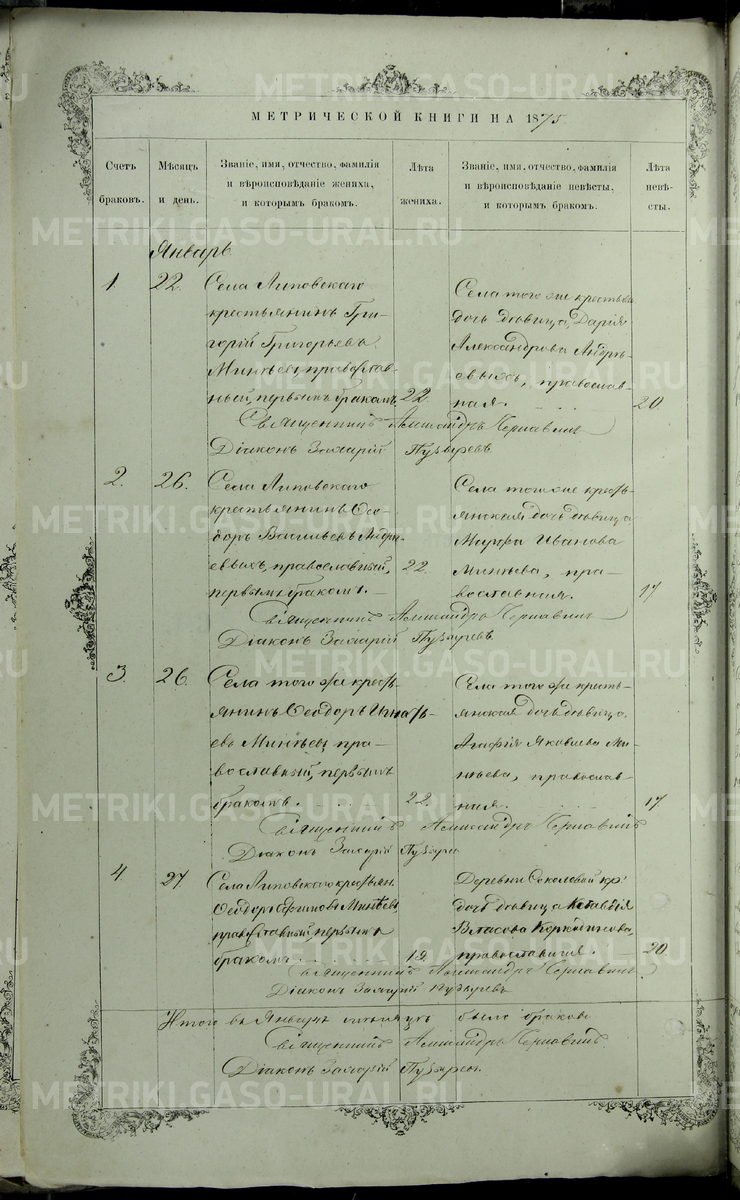 МЕТРИЧЕСКОЙ КНИГИ НА 1875.
Счетъ браковъ.
Мѣсяцъ и день.
Званіе, имя, отчество, фамилія и вѣроисповѣданіе жениха, и которымъ бракомъ.
Лѣта жениха.
Званіе, имя, отчество, фамилія и вѣроисповѣданіе невѣсты, и которымъ бракомъ.
Лѣта невѣсты.
Январь
1. 22. Села Липовскаго
крестьянинъ Гри-
горій Григорьевъ
Минѣевъ, православ-
ный, первымъ бракомъ, 22
Села того же
дочь дѣвица, Дарія
Александрова Андре-
евыхъ, православ-
ная. 20
Священникъ Александръ Чернавинъ
Діаконъ Захарій Пузыревъ
2. 26. Села Липовскаго
крестьянинъ Ѳео-
доръ Васильевъ Андре-
евыхъ, православный,
первымъ бракомъ. 22.
Села того же кресть-
янская дочь дѣвица
Марфа Иванова
Минѣева, пра-
вославная. 17
Священникъ Александръ Чернавинъ
Діаконъ Захарій Пузыревъ
3. 26. Села того же кресть-
янинъ Ѳеодоръ Игнать-
евъ Минѣевъ, пра-
вославный, первымъ
бракомъ. 22.
Села того же кресть-
янская дочь дѣвица
Агафія Яковлева Ми-
нѣева, православ-
ная. 17
Священникъ Александръ Чернавинъ
Діаконъ Захарій Пузыревъ
4. 27. Села Липовскаго крестьян.
Ѳеодоръ Минѣевъ,
православный, первымъ
бракомъ. 19.
Деревни Соколовой кр.
дочь дѣвица
Власова
православная. 20.
Священникъ Александръ Чернавинъ
Діаконъ Захарій Пузыревъ
Итого въ Январѣ мѣсяцѣ было браковъ
Священникъ Александръ Чернавинъ
Діаконъ Захарій Пузыревъ
METRIKI.GASO-URAL.RU